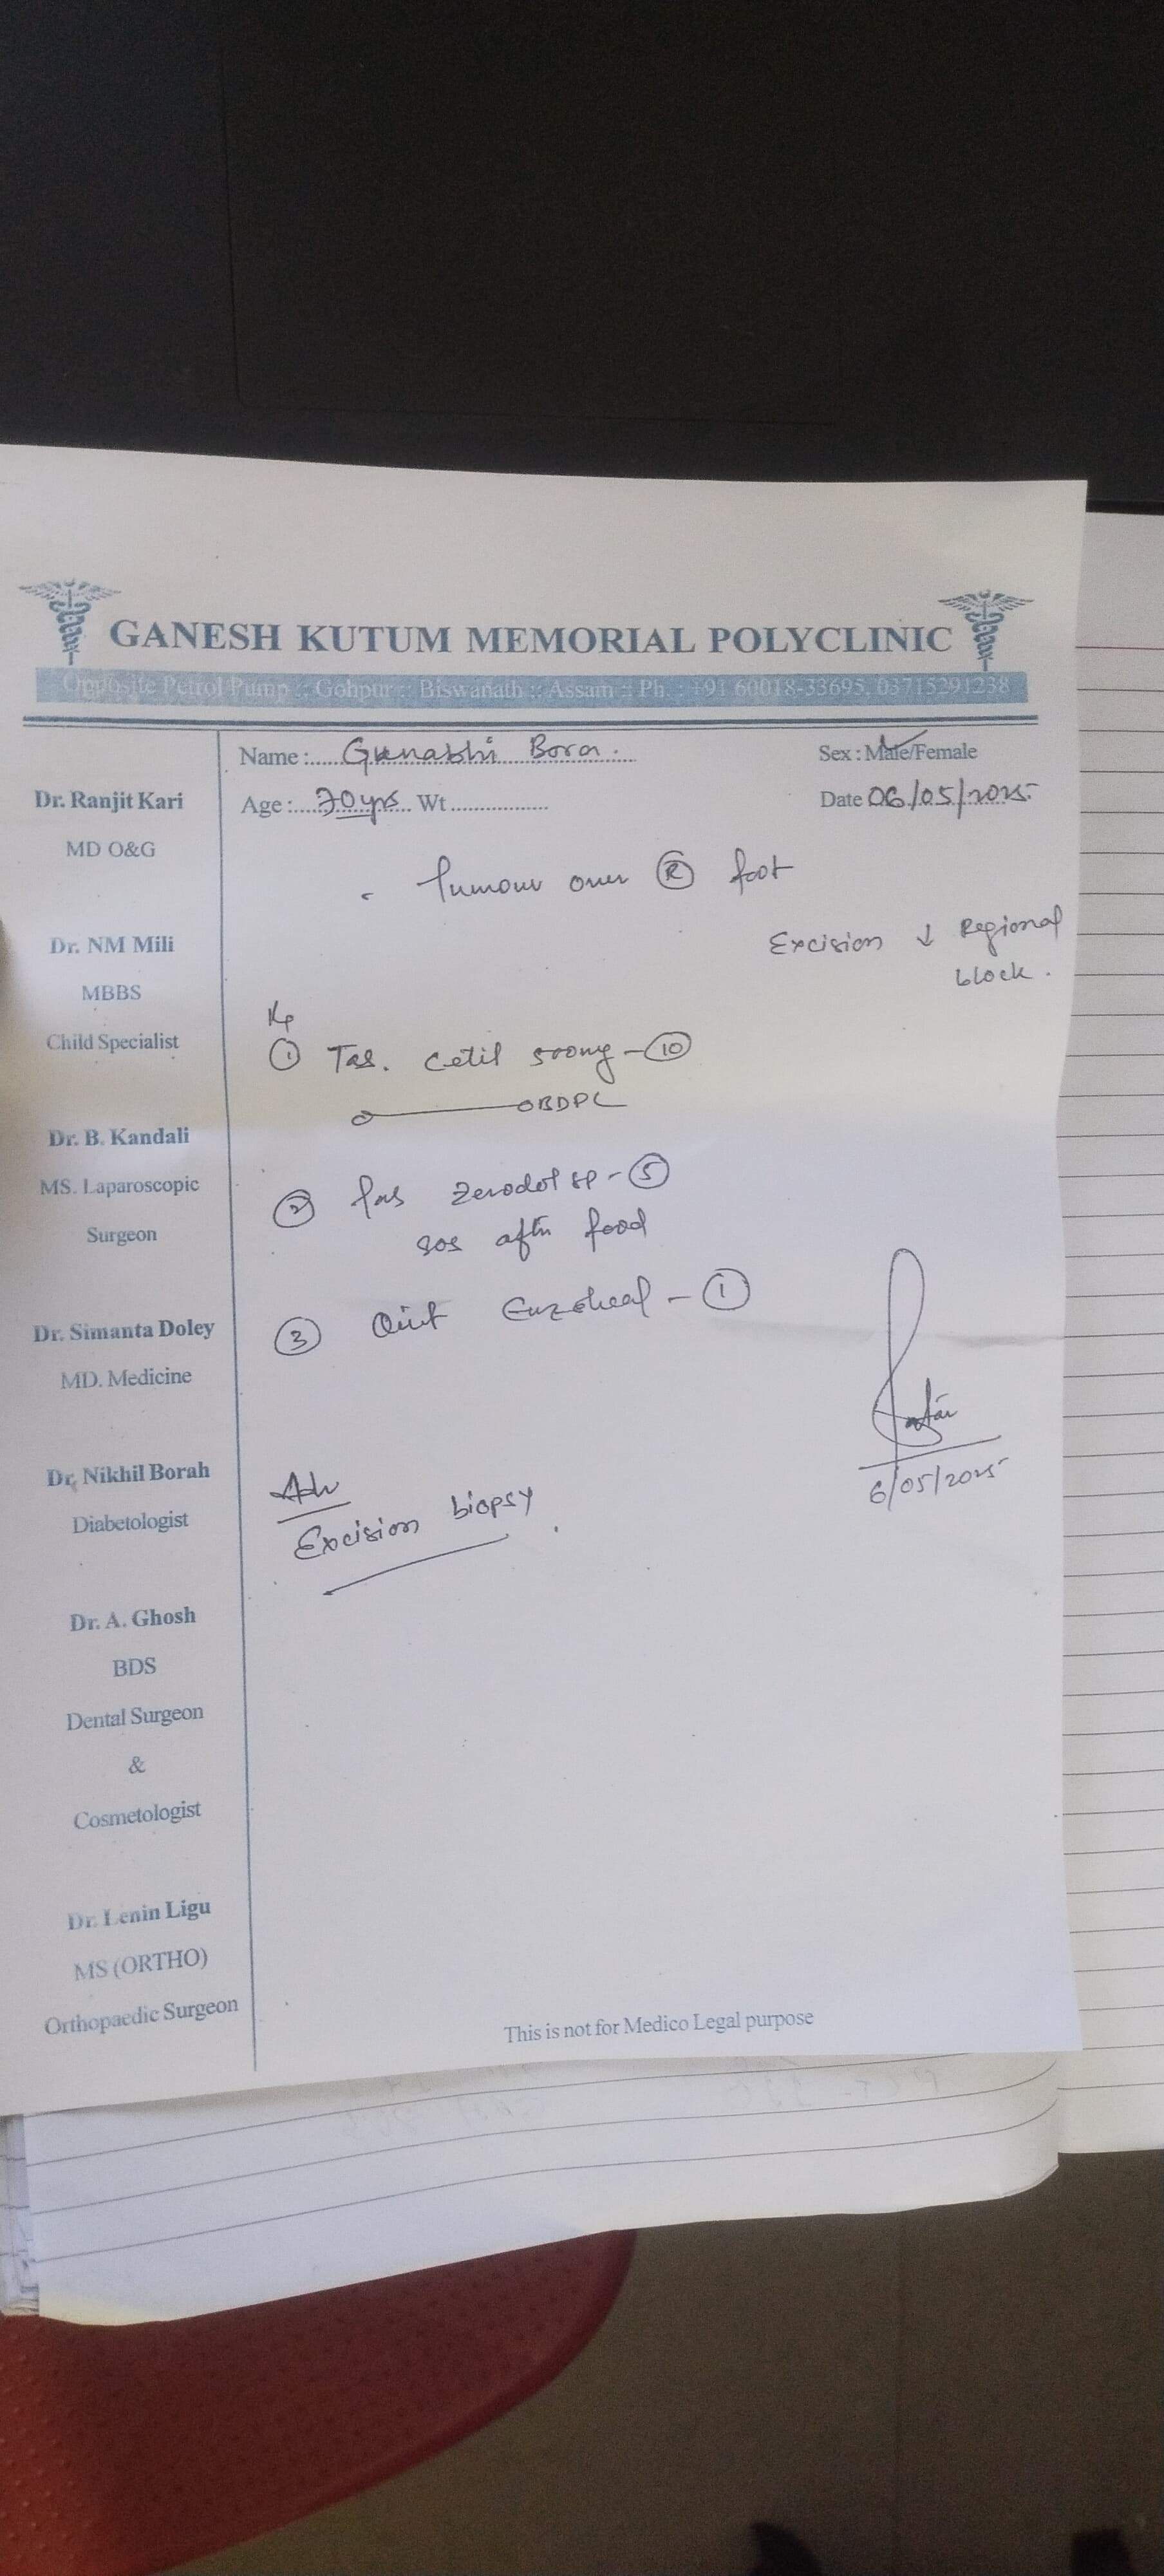 GANESH KUTUM MEMORIAL POLYCLINIC
Opposite Petrol Pump :: Gohpur :: Biswanath :: Assam :: Ph. : +91 60018-33695, 03715291238
Name :..... Gunabhi Bora.
Sex : Male/Female
Age :... 70yrs Wt ....................
Date 06/05/2025
Dr. Ranjit Kari
MD O&G
Dr. NM Mili
MBBS
Child Specialist
Dr. B. Kandali
MS. Laparoscopic
Surgeon
Dr. Simanta Doley
MD. Medicine
Dr. Nikhil Borah
Diabetologist
Dr. A. Ghosh
BDS
Dental Surgeon
&
Cosmetologist
Dr. Lenin Ligu
MS (ORTHO)
Orthopaedic Surgeon
- Tumour over Ⓡ foot
Excision ↓ Regional
block.
① Tab. Cetil 500mg - ⑩
BDPC
② Tab Zerodol sp - ⑤
sos after food
③ Oint Enzoheal - ①
6/05/2025
Adv
Excision biopsy
This is not for Medico Legal purpose